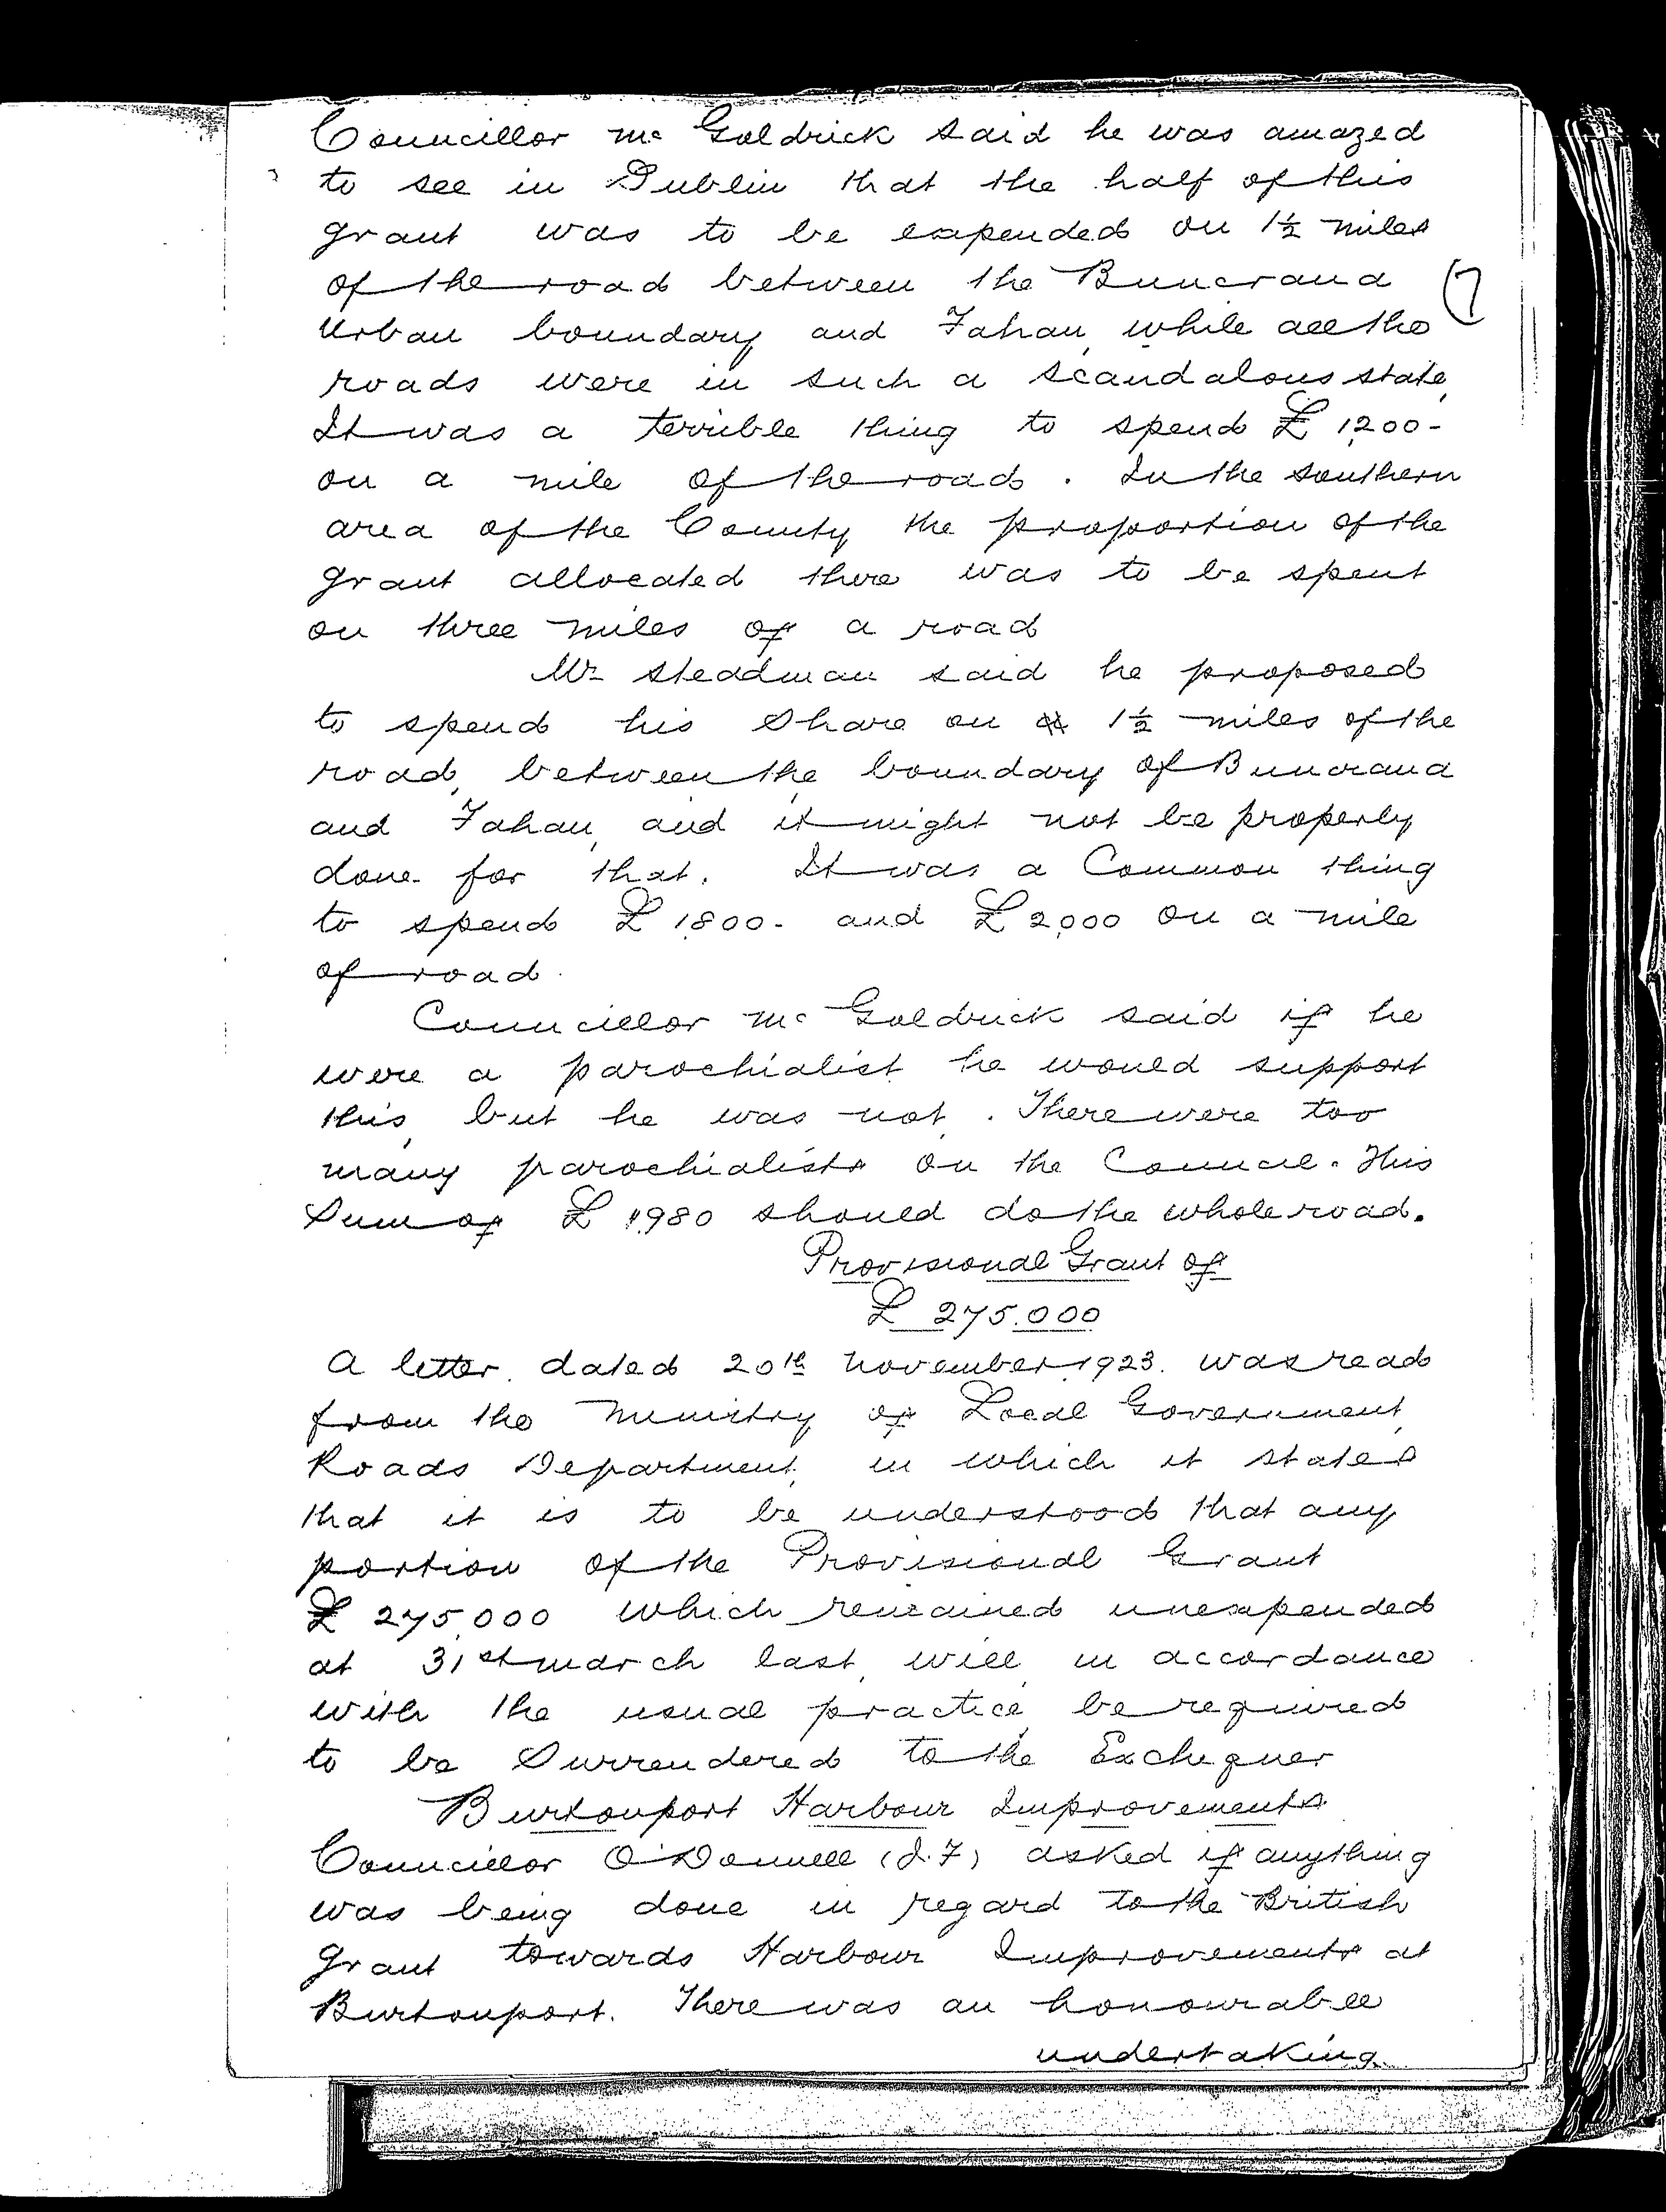 Councillor Mc Goldrick said he was amazed
to see in Dublin that the half of this
grant was to be expended on 1½ miles
of the road between the Buncrana
(7
Urban boundary and Fahan, while all the
roads were in such a scandalous state,
It was a terrible thing to spend £1,200-
on a mile of the road. In the southern
area of the County the proportion of the
grant allocated there was to be spent
on three miles of a road
Mr Steadman said he proposed
to spend his share on 1½ miles of the
road, between the boundary of Buncrana
and Fahan, and it might not be properly
done for that. It was a Common thing
to spend £1,800- and £2,000 on a mile
of road.
Councillor Mc Goldrick said if he
were a parochialist he would support
this, but he was not. There were too
many parochialists on the Council. This
Sum of £1,980 should do the whole road.
Provisional Grant of
£275.000
A letter, dated 20th November, 1923. was read
from the Ministry of Local Government,
Roads Department, in which it states
that it is to be understood that any
portion of the Provisional Grant
£275,000 which remained unexpended
at 31st March last, will, in accordance
with the usual practice, be required
to be Surrendered to the Exchequer
Burtonport Harbour Improvements
Councillor O'Donnell (J.F) asked if anything
was being done in regard to the British
grant towards Harbour Improvements at
Burtonport. There was an honourable
undertaking.